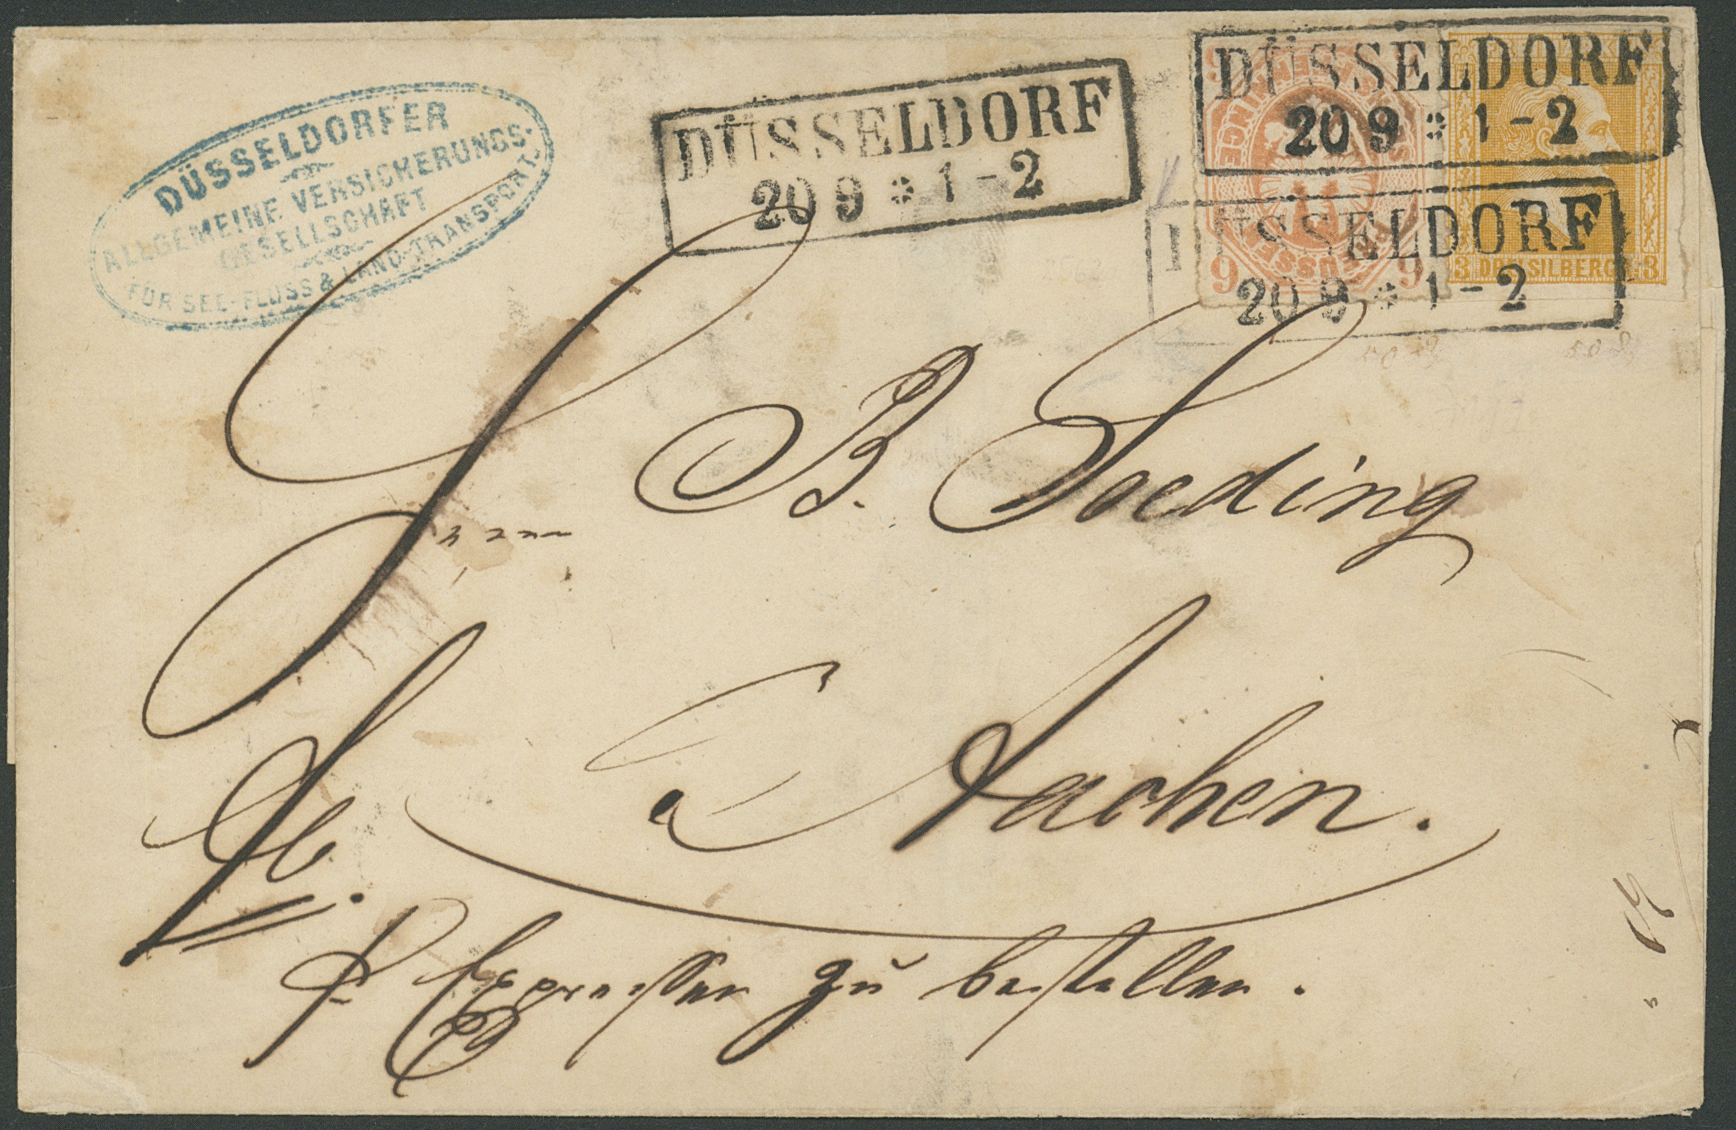 DÜSSELDORFER
ALLGEMEINE VERSICHERUNGS-
GESELLSCHAFT
FÜR SEE-FLUSS & LAND-TRANSPORT.
DÜSSELDORF
20 9 * 1 - 2
DÜSSELDORF
20 9 * 1 - 2
DÜSSELDORF
20 9 * 1 - 2
9 9
3 DREI SILBERGR. 3
B. Soeding
Aachen.
fb.
p Expressen zu bestellen.